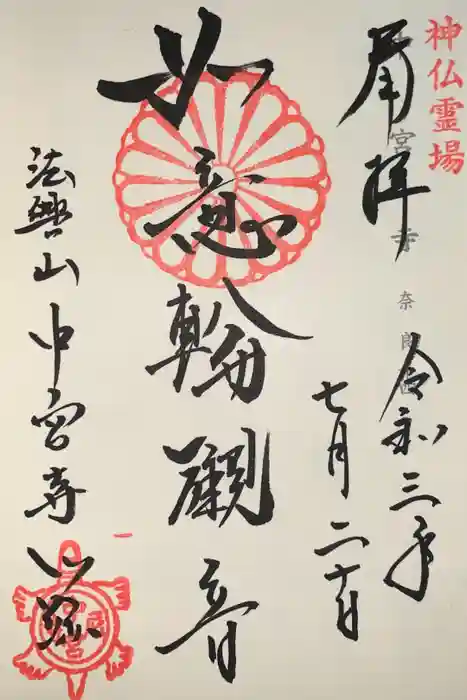 神仏霊場
奉拝
宮寺 奈良
令和三年
七月二十日
如意輪觀音
法興山 中宮寺